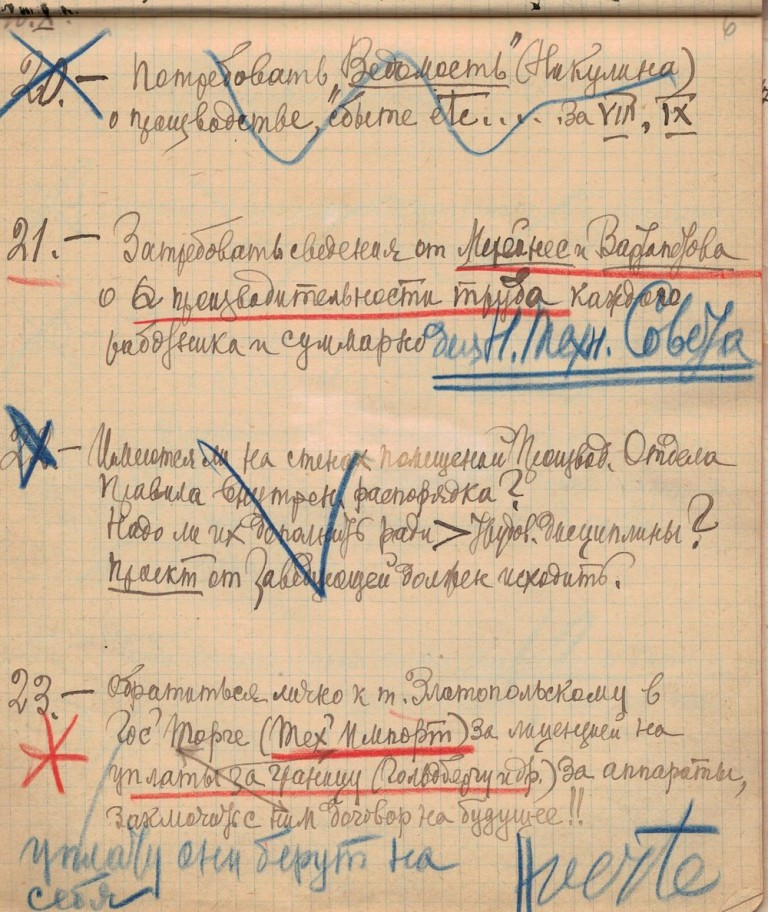 6
20.— Потребовать „Ведомость" (Никулина)
о производстве, сбыте etc.... за VIII, IX
21.— Затребовать сведения от Мейнес и Вартапетова
о производительности труда каждого
работника и суммарно для Н. Техн. Совета
22.— Имеются ли на стенах помещений Производ. Отдела
Правила внутрен. распорядка?
Надо ли их дополнить ради > трудов. дисциплины?
Проект от Заведующей должен исходить.
23.— Обратиться лично к т. Златопольскому в
Гос Торге (Тех Импорт) за лицензией на
уплаты за границу (Гольдбергу и др.) за аппараты,
заключить с ним договор на будущее!!
уплату они берут на
себя